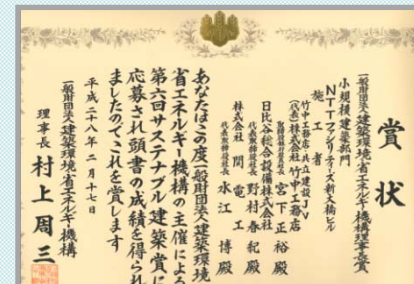 賞状
一般財団法人建築環境・省エネルギー機構理事長賞
小規模建築部門
NTTファシリティーズ新大橋ビル
施工者
竹中工務店・共立建設JV
(代表)株式会社竹中工務店
取締役社長 宮下正裕殿
日比谷総合設備株式会社
代表取締役社長 野村春紀殿
株式会社関電工
代表取締役社長 水江博殿
あなたはこの度一般財団法人建築環境
省エネルギー機構の主催による
第六回サステナブル建築賞に
応募され頭書の成績を得られ
ましたのでこれを賞します
平成二十八年二月十七日
一般財団法人建築環境・省エネルギー機構
理事長 村上周三